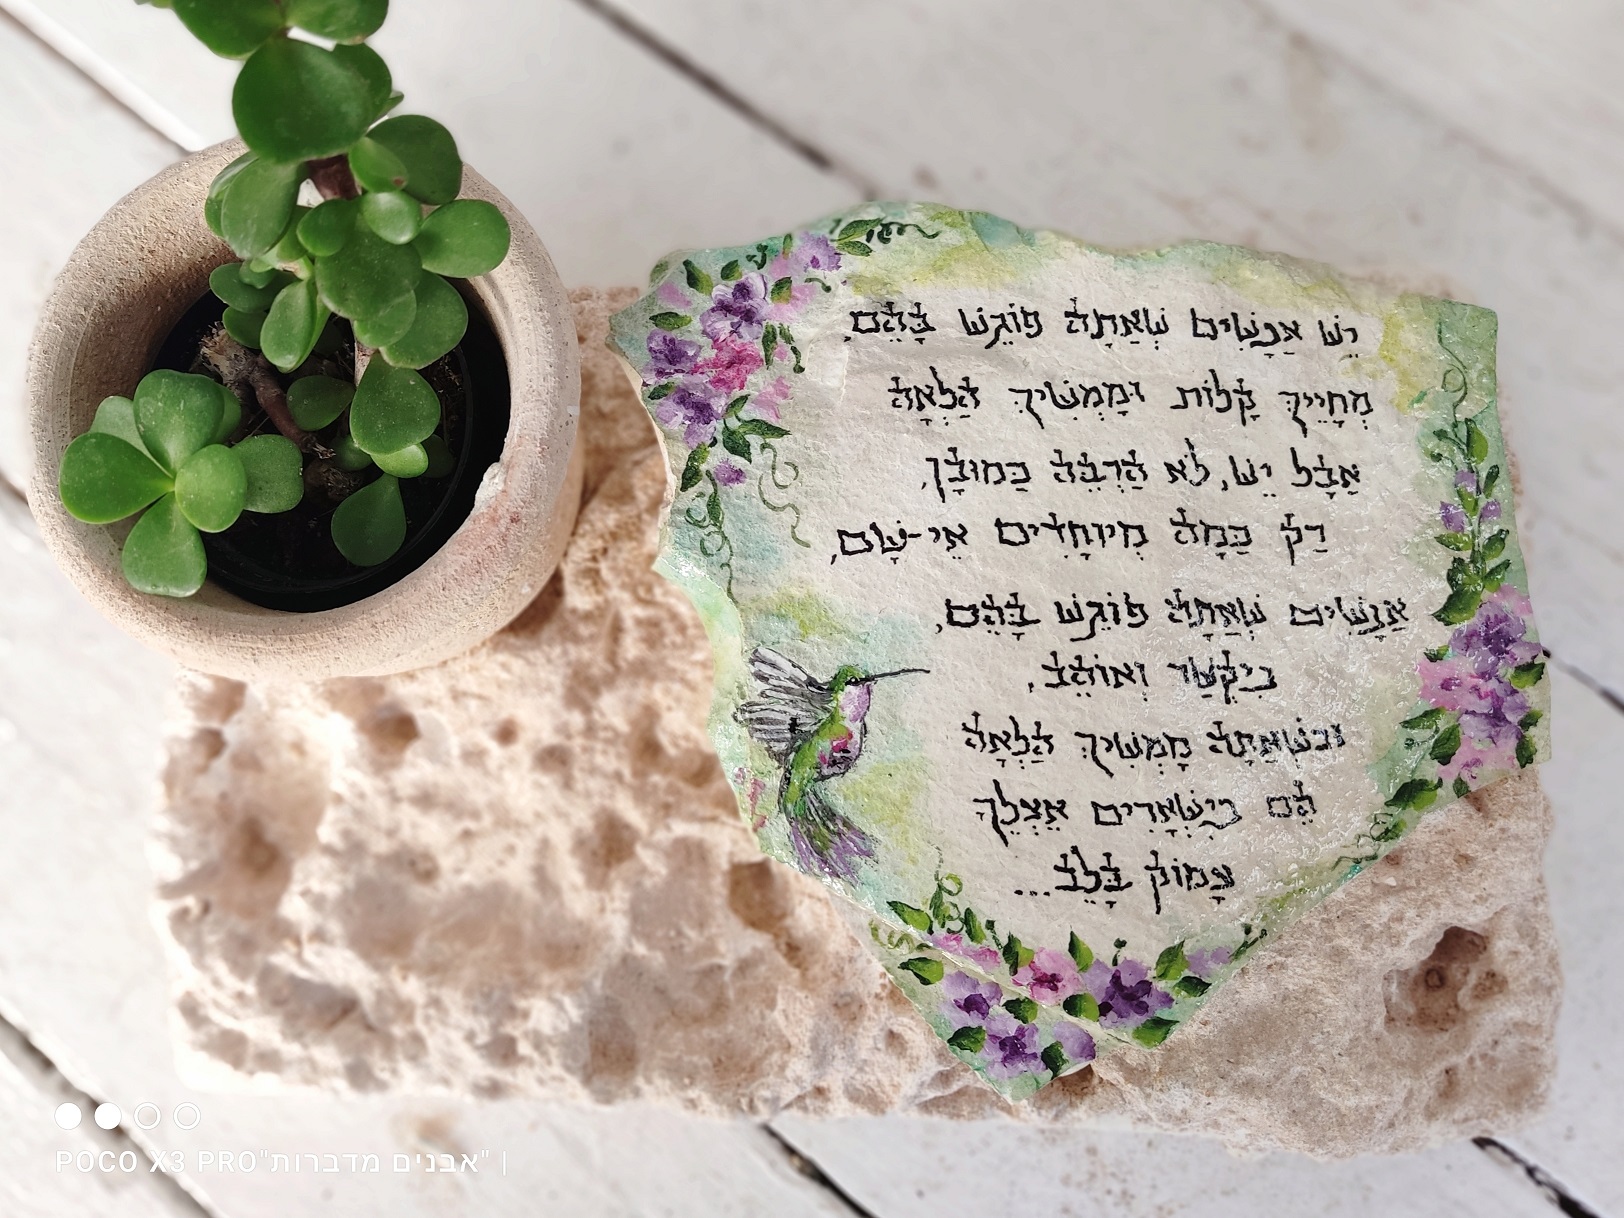 יֵשׁ אֲנָשִׁים שֶׁאַתָּה פּוֹגֵשׁ בָּהֶם,
מְחַיֵּיךְ קַלּוֹת וּמַמְשִׁיךְ הָלְאָה
אֲבָל יֵשׁ, לֹא הַרְבֵּה כַּמּוּבָן,
רַק כַּמָּה מְיוּחָדִים אֵי-שָׁם,
אֲנָשִׁים שֶׁאַתָּה פּוֹגֵשׁ בָּהֶם,
נִיקְשָׁר וְאוֹהֵב,
וּכְשֶׁאַתָּה מַמְשִׁיךְ הָלְאָה
הֵם נִישְׁאָרִים אֶצְלְךָ
עָמוֹק בַּלֵּב...
POCO X3 PRO"אבנים מדברות" |